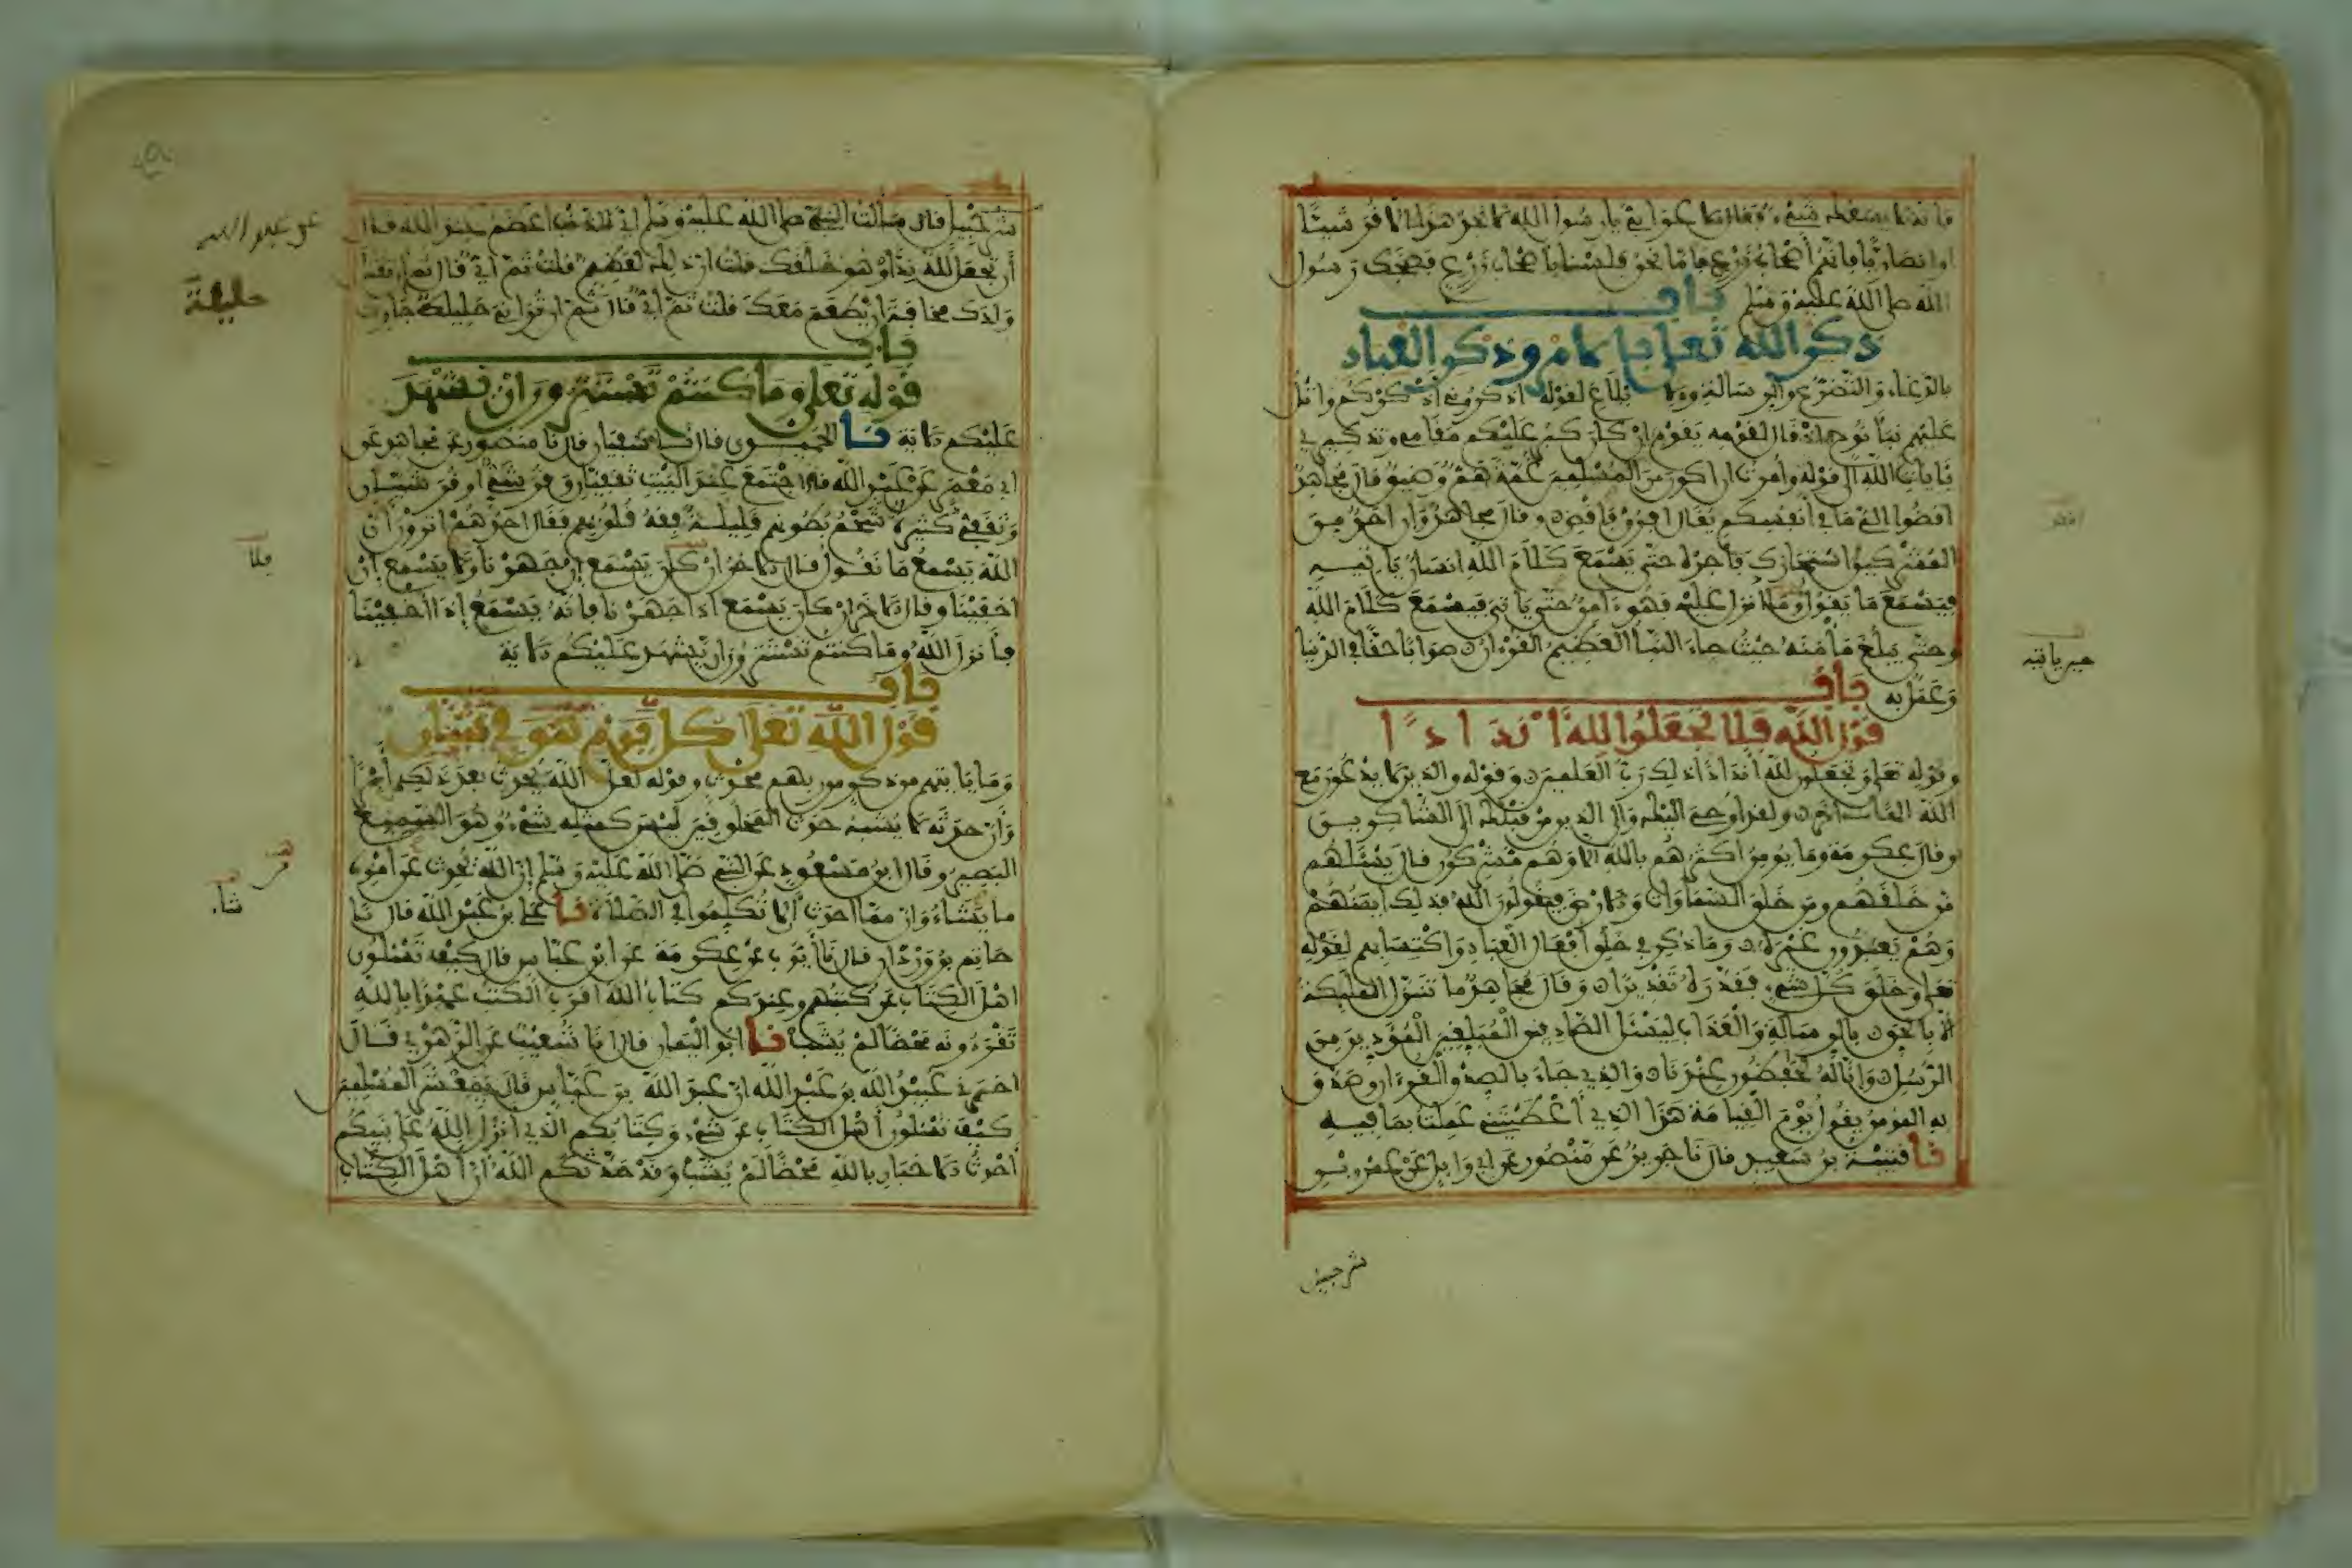 فإنه لا يشبعك شيء وقال الأعرابي يا رسول الله لا تجد هذا إلا قرشيا
أو أنصاريا فإنهم أصحاب زرع فأما نحن فلسنا بأصحاب زرع فضحك رسول
الله صلى الله عليه وسلم باب
ذكر الله تعالى بالأمر وذكر العباد
بالدعاء والتضرع والرسالة والإبلاغ لقوله اذكروني أذكركم واتل
عليهم نبأ نوح إذ قال لقومه يقوم إن كان كبر عليكم مقامي وتذكيري
بآيات الله إلى قوله وأمرت أن أكون من المسلمين غمة هم وضيق قال مجاهد
اقضوا إلي ما في أنفسكم يقال افرق فاقض وقال مجاهد وإن أحد من
المشركين استجارك فأجره حتى يسمع كلام الله إنسان يأتيه
فيستمع ما يقول وما أنزل عليه فهو آمن حتى يأتي فيسمع كلام الله
وحتى يبلغ مأمنه حيث جاء النبأ العظيم القرءان صوابا حقا في الدنيا
وعمل به باب
قول الله فلا تجعلوا لله أندادا
وقوله تعلى وتجعلون لله أندادا ذلك رب العلمين وقوله والذين لا يدعون مع
الله إلها آخر ولقد أوحي إليك وإلى الذين من قبلك إلى الشاكرين
وقال عكرمة وما يومن أكثرهم بالله إلا وهم مشركون قال يسئلهم
من خلقهم ومن خلق السماوات والأرض فيقولون الله فذلك إيمنهم
وهم يعبدون غيره وما ذكر في خلق أفعال العباد واكتسابهم لقوله
تعلى وخلق كل شيء فقدره تقديرا وقال مجاهد ما تنزل المليكة
إلا بالحق بالرسالة والعذاب ليسئل الصادقين المبلغين المؤدين من
الرسل وإنا له لحفظون عندنا والذي جاء بالصدق القرءان وصدق
به المومن يقول يوم القيامة هذا الذي أعطيتني عملت بما فيه
نا قتيبة بن سعيد قال نا جرير عن منصور عن أبي وايل عن عمرو بن
شرحبيل
شرحبيل قال سألت النبي صلى الله عليه وسلم أي الذنب أعظم عند الله قال
أن تجعل لله ندا وهو خلقك قلت إن ذلك لعظيم قلت ثم أي قال ثم أن تقتل
ولدك مخافة أن يطعم معك قلت ثم أي قال ثم أن تزاني حليلة جارك
عن عبد الله
حليلة
باب
قوله تعلى وما كنتم تستترون أن يشهد
عليكم الآية نا الحميدي قال نا سفيان قال نا منصور عن مجاهد عن
أبي معمر عن عبد الله قال اجتمع عند البيت ثقفيان وقرشي أو قرشيان
وثقفي كثيرة شحم بطونهم قليلة فقه قلوبهم فقال أحدهم أترون أن
الله يسمع ما نقول قال الآخر إن كان يسمع إن جهرنا ولا يسمع إن
أخفينا وقال الآخر إن كان يسمع إذا جهرنا فإنه يسمع إذا أخفينا
فأنزل الله وما كنتم تستترون أن يشهد عليكم الآية
باب
قول الله تعلى كل يوم هو في شأن
وما ياتيهم من ذكر من ربهم محدث وقوله لعل الله يحدث بعد ذلك أمرا
وأن حدثه لا يشبه حدث المخلوقين ليس كمثله شيء وهو السميع
البصير وقال ابن مسعود عن النبي صلى الله عليه وسلم إن الله يحدث من أمره
ما يشاء وإن مما أحدث ألا تكلموا في الصلاة نا علي بن عبد الله قال نا
حاتم بن وردان قال نا أيوب عن عكرمة عن ابن عباس قال كيف تسئلون
أهل الكتاب عن كتبهم وعندكم كتاب الله أقرب الكتب عهدا بالله
تقرءونه محضا لم يشب نا أبو اليمان قال نا شعيب عن الزهري قال
أخبرني عبيد الله بن عبد الله أن عبد الله بن عباس قال يمعشر المسلمين
كيف تسئلون أهل الكتاب عن شيء وكتابكم الذي أنزل الله على نبيكم
أحدث الأخبار بالله محضا لم يشب وقد حدثكم الله أن أهل الكتاب